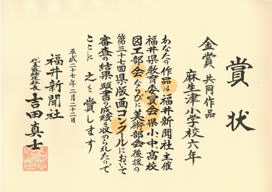 賞状
金賞 共同作品
麻生津小学校六年
あなたの作品は福井新聞社主催
福井県教育委員会県小中高校
図工部会ならびに美術部会後援の
第三十七回県版画コンクールにおいて
審査の結果頭書の成績を収められたので
ここに之を賞します
平成二十七年二月二十二日
福井新聞社
代表取締役社長 吉田真士